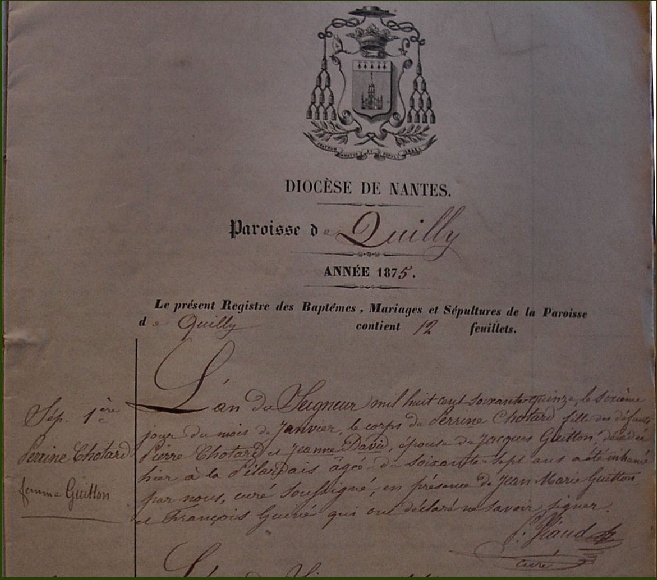 DIOCÈSE DE NANTES.
Paroisse de Quilly
ANNÉE 1875.
Le présent Registre des Baptêmes, Mariages et Sépultures de la Paroisse
de Quilly contient 12 feuillets.
Sép. 1ère
Perrine Chotard
femme Guitton
L'an du Seigneur mil huit cent soixante-quinze, le sixième
jour du mois de Janvier, le corps de Perrine Chotard fille des défunts
Pierre Chotard et Jeanne David, épouse de Jacques Guitton, décédée
hier à la âgée de soixante-sept ans a été inhumé
par nous, curé soussigné, en présence de Jean-Marie Guitton
et François qui ont déclaré ne savoir signer.
curé